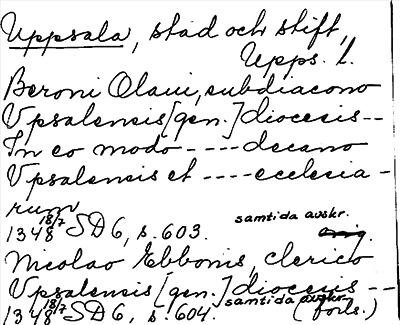 Uppsala, stad och stift,
Upps. l.
Beroni Olaui, subdiacono
Vpsalensis [gen.] diocesis --
In eo modo ---- decano
Vpsalensis et ---- ecclesia-
rum
1348 18/7 SD 6, s. 603. samtida avskr.
Nicolao Ebbonis, clerico
Vpsalensis [gen.] diocesis --
1348 18/7 SD 6, s. 604. samtida avskr. (forts.)